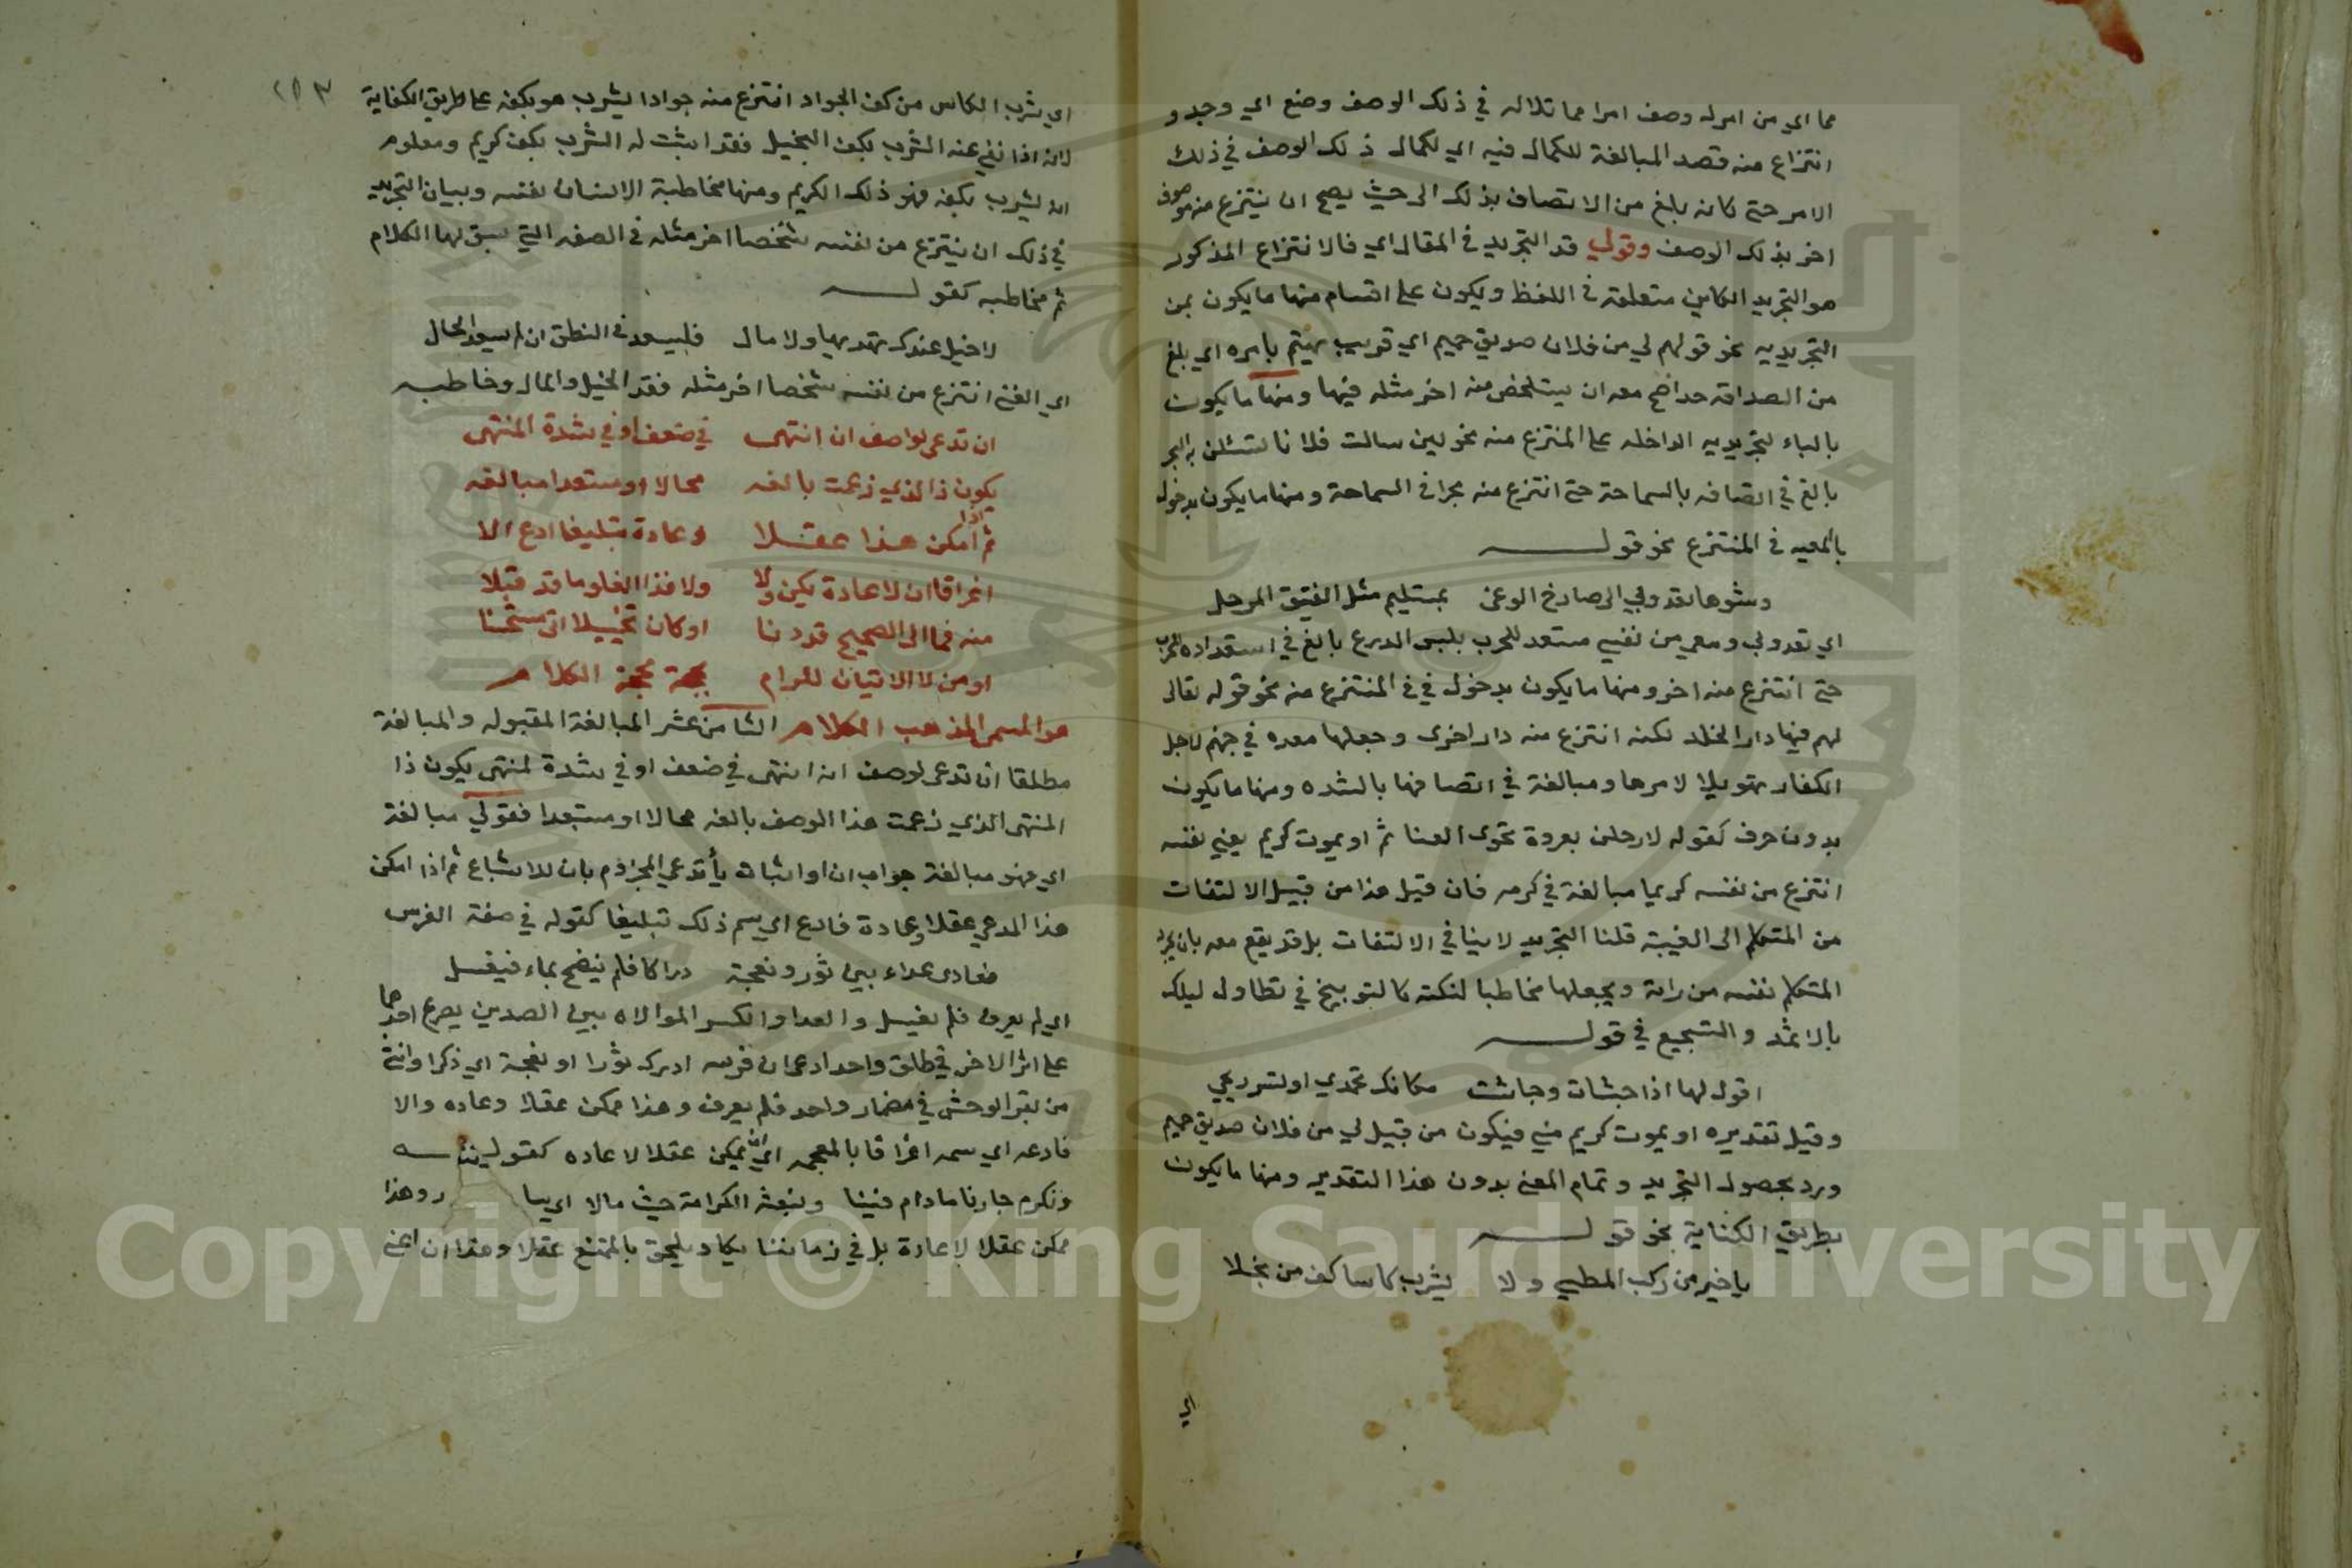 مما اي من امر له وصف امرا مماثلا له في ذلك الوصف وضع اي وجد و
انتزاع منه قصد المبالغة للكمال فيه اي لكمال ذلك الوصف في ذلك
الامر حتى كانه بلغ من الاتصاف بذلك الى حيث يصح ان ينتزع منه موصوف
اخر بذلك الوصف وقولي قد التجريد في المقال اي فالانتزاع المذكور
هو التجريد الكاين متعلقه في اللفظ ويكون على اقسام منها ما يكون بمن
التجريديه نحو قولهم لي من فلان صديق حميم اي قريب يهتم بامره اي بلغ
من الصداقه حدا صح معه ان يستخلص منه اخر مثله فيها ومنها ما يكون
بالباء التجريديه الداخله على المنتزع منه نحو لين سالت فلانا لتسئلن به البحر
بالغ في اتصافه بالسماحة حتى انتزع منه بحرا في السماحة ومنها ما يكون بدخول
باء المعيه في المنتزع نحو قولـه
وشوها تعدو بي الى صارخ الوغى بمستليم مثل الفنيق المرحل
اي تعدو بي ومعي من نفسي مستعد للحرب بلبس الدرع بالغ في استعداده للحرب
حتى انتزع منه اخر ومنها ما يكون بدخول في في المنتزع منه نحو قوله تعالى
لهم فيها دار الخلد لكنه انتزع منه دار اخرى وجعلها معده في جهنم لاجل
الكفار تهويلا لامرها ومبالغة في اتصافها بالشده ومنها ما يكون
بدون حرف كقوله لارحلن بغزوة تحوى الغنا ئم او يموت كريم يعني نفسه
انتزع من نفسه كريما مبالغة في كرمه فان قيل هذا من قبيل الالتفات
من المتكلم الى الغيبة قلنا التجريد لا ينافي الالتفات بل قد يقع معه بان يجرد
المتكلم نفسه من ذاته ويجعلها مخاطبا لنكته كالتوبيخ في تطاول ليلك
بالاثمد والتشجيع في قولـه
اقول لها اذا جشات وجاشت مكانك تحمدي او تستريحي
وقيل تقديره او يموت كريم مني فيكون من قبيل لي من فلان صديق حميم
ورد بحصول التجريد وتمام المعنى بدون هذا التقدير ومنها ما يكون
بطريق الكناية نحو قولـه
يا خير من ركب المطي ولا يشرب كاسا كف من بخلا
اي
اي يشرب الكاس من كف الجواد انتزع منه جوادا يشرب هو بكفه على طريق الكناية
لانه اذا نفي عنه الشرب بكف البخيل فقد اثبت له الشرب بكف كريم ومعلوم
انه يشرب بكفه فهو ذلك الكريم ومنها مخاطبة الانسان نفسه وبيان التجريد
في ذلك ان ينتزع من نفسه شخصا اخر مثله في الصفه التي سبق لها الكلام
ثم مخاطبه كقولـه
لا خيل عندك تهديها ولا مال فليسعد في النطق ان لم يسعد الحال
اي الغنى انتزع من نفسه شخصا اخر مثله فقد الخيل والمال وخاطبه
ان تدعى لواصف ان انتهى في ضعف او في شدة المنتهى
يكون ذا الذي زعمت بالغه محالا او مستبعدا مبالغه
ثم اذا امكن هذا عقلا وعادة تبليغا ادع الا
اغراقا ان لا عادة يكن ولا ولا فذا الغلو ما قد قبلا
منه فما الى الصحيح قد دنا او كان تخييلا اتى مستحسنا
او من لا الاتيان للمرام بحجة الكلام
هو المسمى المذهب الكلام الثامن عشر المبالغة المقبوله والمبالغة
مطلقا ان تدعى لوصف انه انتهى في ضعف او في شدة لمنتهى يكون ذا
المنتهى الذي زعمت هذا الوصف بالغه محالا او مستبعدا فقولي مبالغة
اي فهو مبالغة جواب ان واثبات يأ تدعي المجزوم بان للاشباع ثم اذا امكن
هذا المدعي عقلا وعادة فادع اي سم ذلك تبليغا كقوله في صفة الفرس
فعادى عداء بين ثور ونعجة دراكا فلم ينضح بماء فيغسل
اي لم يعرق فلم يغسل والعدا والكسر الموالاه بين الصدين يصرع احدهما
على اثر الاخر في طلق واحد ادعى ان فرسه ادرك ثورا او نعجة اي ذكرا وانثى
من بقر الوحش في مضمار واحد فلم يعرق وهذا ممكن عقلا وعاده والا
فادعه اي سمه اغراقا بالمعجمه اي ان يمكن عقلا لا عاده كقولـه
ونكرم جارنا ما دام فينا ونتبعه الكرامة حيث مالا اي وهذا
ممكن عقلا لا عادة بل في زماننا يكاد يلحق بالممتنع عقلا وهذا ان اعني
Copyright © King Saud University